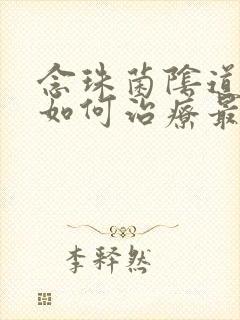 念珠菌陰道
如何治療最
李释然